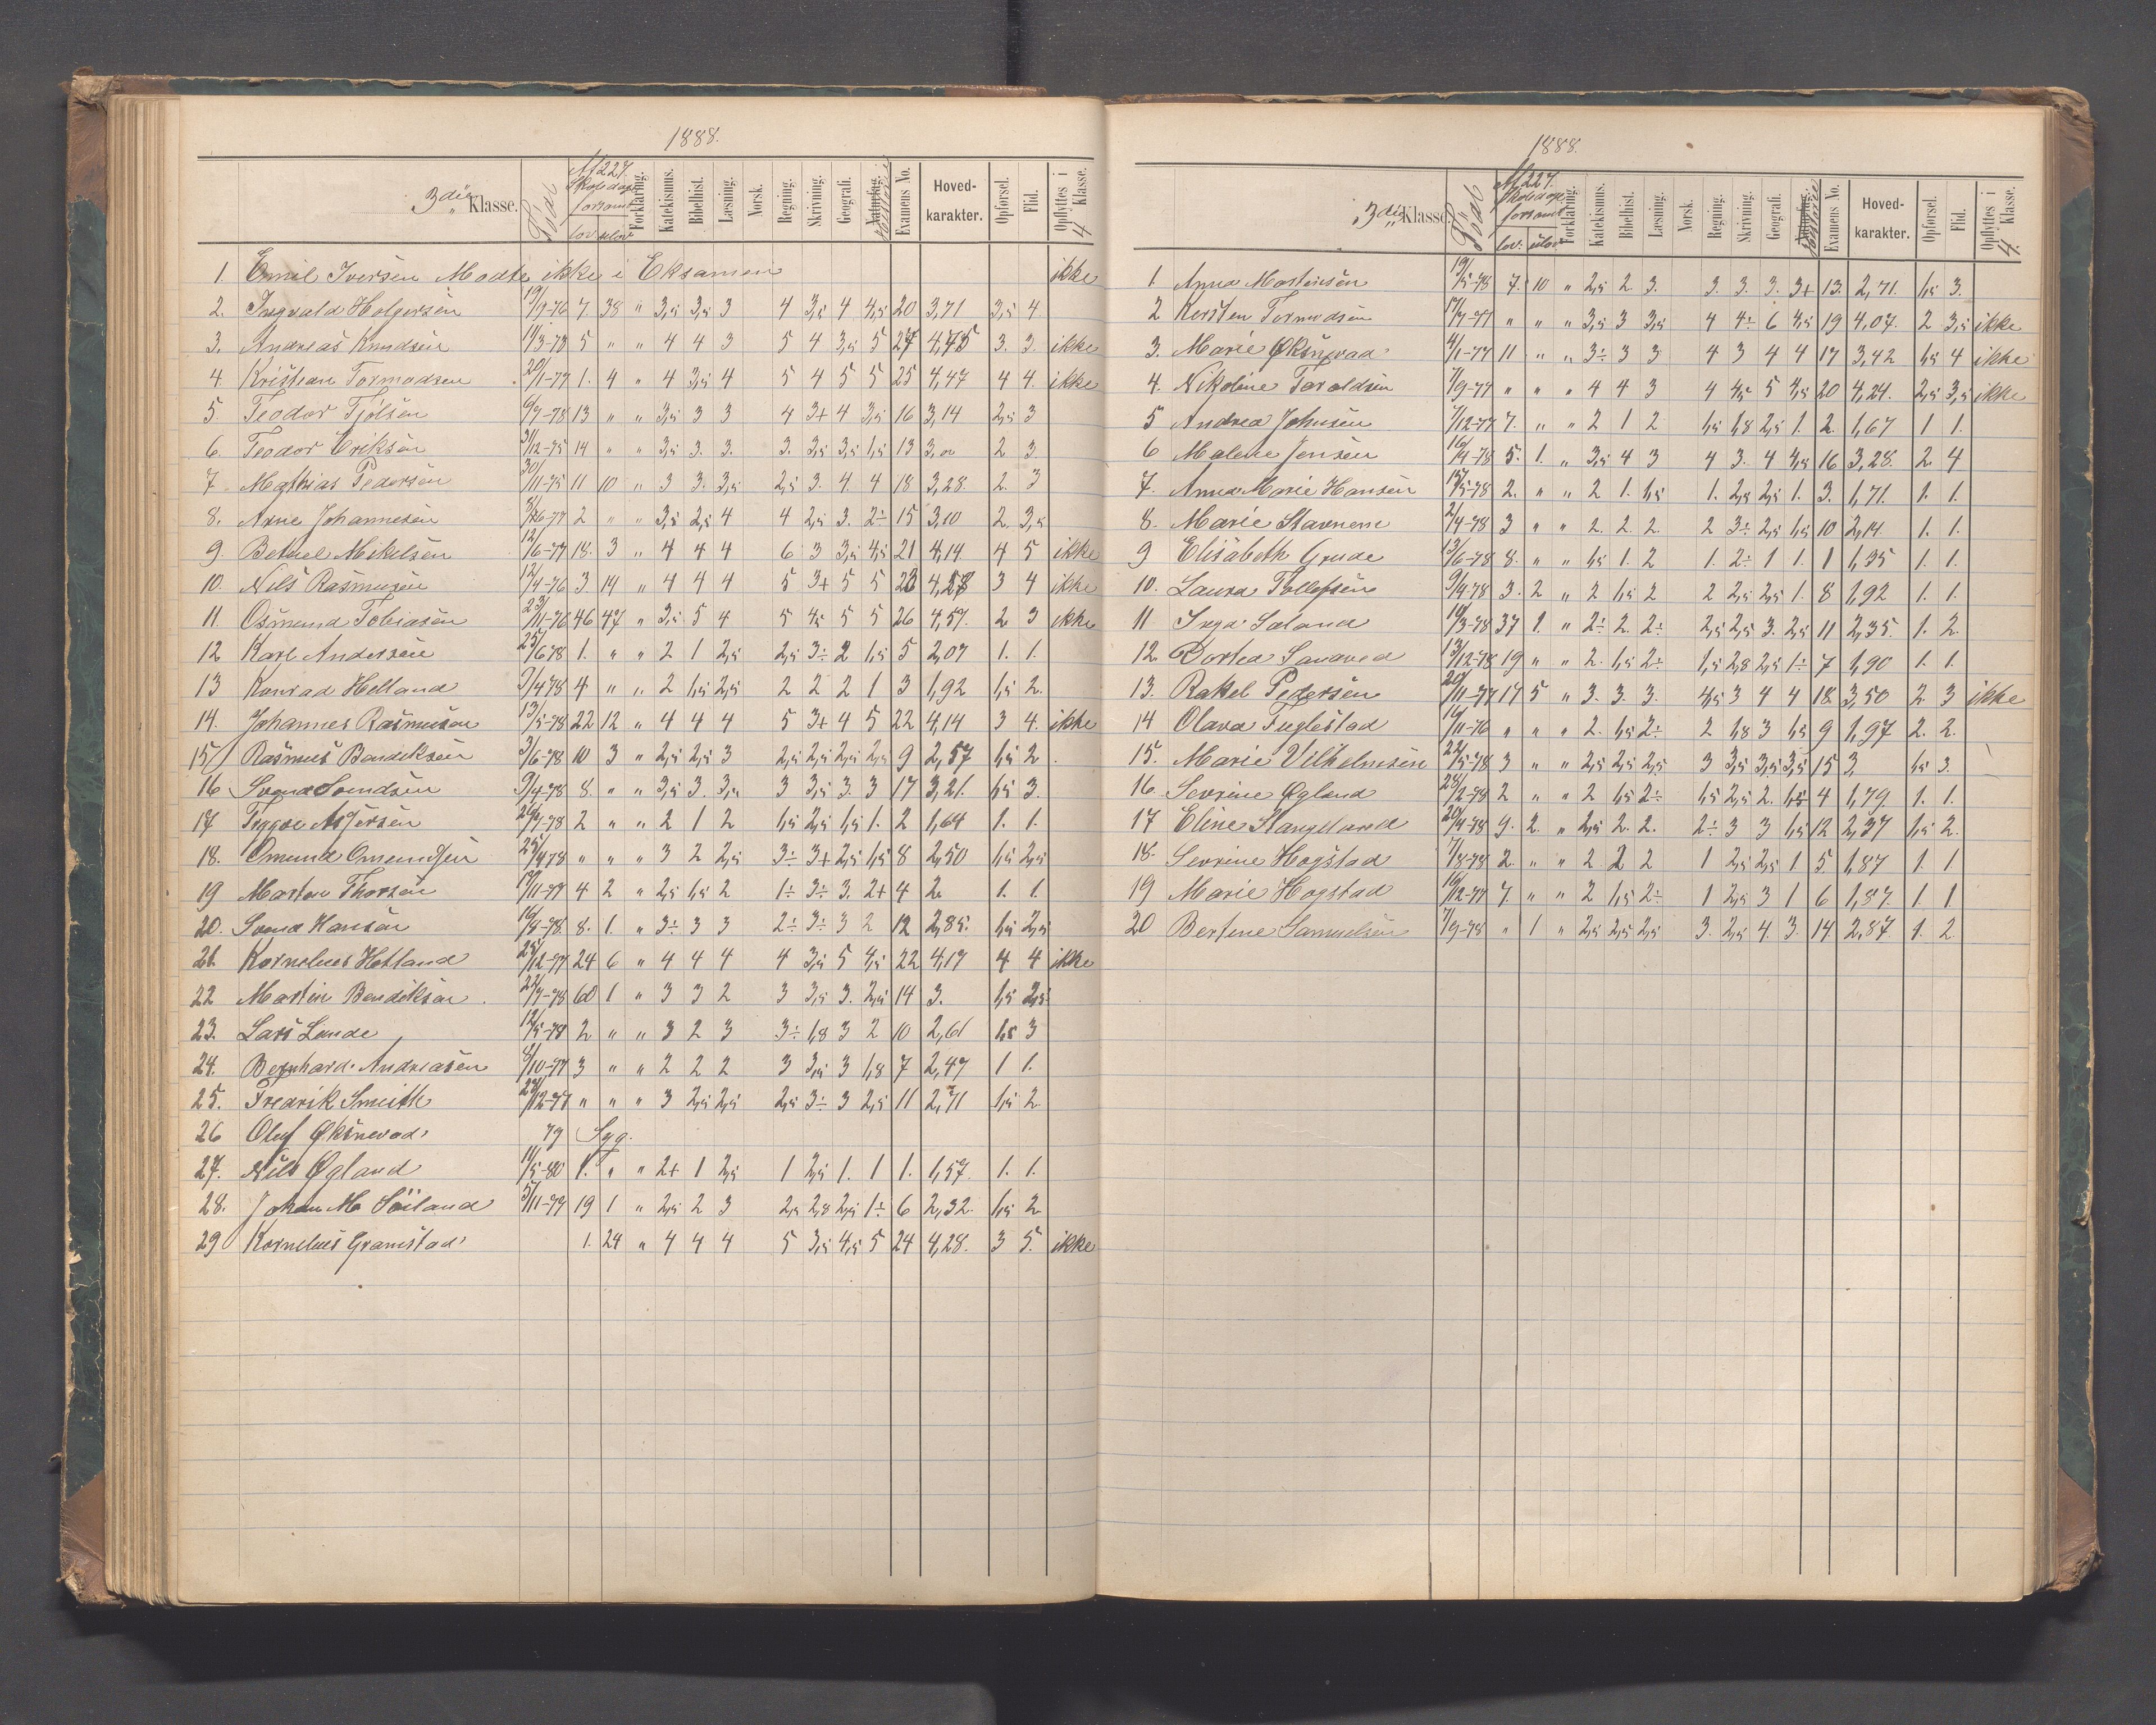 1888.
3die Klasse.
Född
Af 227 Skoledage forsømt
lov. ulov.
Forklaring.
Katekismus.
Bibelhist.
Læsning.
Norsk.
Regning.
Skrivning.
Geografi.
Examens No.
Hoved-karakter.
Opførsel.
Flid.
Opflyttes i 4 Klasse.
1. Emil Iversen Mødte ikke i Eksamen ikke
2. Ingvald Holgersen 19/9-76 7 38 " 3,5 3,5 3 4 3,5 4 4,5 20 3,71 3,5 4
3. Andreas Knudsen 11/3-78 5 " " 4 4 3 5 4 3,5 5 27 4,75 3. 3. ikke
4. Kristian Tormodsen 20/1-77 1. 4 " 4 3,5 4 5 4 5 5 25 4,47 4 4. ikke
5 Teodor Tjølsen 6/7-78 13 " " 3,5 3 3 4 3+ 4 3,5 16 3,14 2,5 3
6. Teodor Eriksen 31/12-75 14 " " 3,5 3. 3. 3. 3,5 3,5 1,5 13 3,00 2 3
7. Mathias Pedersen 30/11-75 11 10 " 3 3. 3,5 2,5 3. 4. 4 18 3,28. 2. 3
8. Arne Johannesen 2 " " 3,5 2,5 4 4 2,5 3. 2÷ 15 3,10 2. 3,5
9. Betuel Mikelsen 12/6-77 18. 3 " 4 4 4 6 3 3,5 4,5 21 4,14 4 5 ikke
10. Nils Rasmusen 12/4-76 3 14 " 4 4 4 5 3+ 5 5 23 4,28 3 4 ikke
11. Osmund Tobiasen 23/11-76 46 47 " 3,5 5 4 5 4,5 5 5 26 4,57. 2 3 ikke
12 Karl Andersen 25/6-78 1. " " 2 1 2,5 2,5 3÷ 2 1,5 5 2,07 1. 1.
13 Konrad Helland 9/4-78 4 " " 2 1,5 2,5 2 2 2 1 3 1,92 1,5 2.
14. Johannes Rasmusen 13/5-78 22 12 " 4 4 4 5 3+ 4 5 22 4,14 3 4. ikke
15 Rasmus Bendiksen 3/6-78 10 3 " 2,5 2,5 3 2,5 2,5 2,5 2,5 9 2,57 1,5 2
16 Svend Svendsen 9/4-78 8. " " 3,5 3. 3,5 3 3,5 3. 3 17 3,21. 1,5 3.
17 Tryggve Asjersen 2 " " 2 1 2 1,5 2,5 1,5 1. 2 1,64 1. 1.
18. Omund Omundsen 25/4-78 " " " 3 2 2,5 3÷ 3+ 2,5 1,5 8 2,50 1,5 2,5
19 Morten Thorsen 19/11-77 4 2 " 2,5 1,5 2 1÷ 3÷ 3. 2+ 4 2. 1. 1.
20. Svend Hansen 8. 1. " 3÷ 3 3 2÷ 3÷ 3 2 12 2,85. 1,5 2,5
21. Kornelius Hetland 25/12-77 24 6 " 4 4 4 4 3,5 5 4,5 22 4,17 4 4 ikke
22 Martin Bendiksen 22/7-78 60 1 " 3 3 2 3 3,5 3. 2,5 14 3. 1,5 2,5
23. Lars Lende 12/5-78 2 " " 3 2 3 3÷ 1,8 3 2 10 2,61 1,5 3
24. Bernhard Andreasen 8/10-77 3 " " 2 2 2 3 3,5 3 1,8 7 2,47 1 1.
25. Fredrik Smith " " " 3 2,5 2,5 2,5 3÷ 3 2,5 11 2,71 1,5 2
26 Oluf Øksnevad 79 Syg.
27. Nils Øgland 11/5-80 1. " " 2+ 1 2,5 1 2,5 1. 1 1. 1,57. 1. 1.
28. Johan M. Söiland 5/11-79 19 1 " 2,5 2 3 2,5 2,8 2,5 1÷ 6 2,32. 1,5 2
29 Kornelius Gramstad 1. 24 " 4 4 4 5 3,5 4,5 5 24 4,28. 3 5. ikke
1888.
3die Klasse
Född
Af 227. Skoledage forsømt
lov. ulov.
Forklaring.
Katekismus.
Bibelhist.
Læsning.
Norsk.
Regning.
Skrivning.
Geografi.
Examens No.
Hoved-karakter.
Opførsel.
Flid.
Opflyttes i 4. Klasse.
1 Anna Martinsen 19/5-78 7. 10 " 2,5 2. 3. 3. 3. 3. 3+ 13. 2,71. 1,5 3.
2 Kersten Tormodsen 17/7-77 " " " 3,5 3 3,5 4 4÷ 6 4,5 19 4,07. 2 3,5 ikke
3. Marie Øksnevad 4/1-77 11 " " 3÷ 3 3 4 3 4 4 17 3,42 1,5 4 ikke
4. Nikoline Toroldsen 7/9-77 " " " 4 4 3 4 4,5 5 4,5 20 4,24. 2,5 3,5 ikke
5 Andrea Johnsen 7/12-77 7. " " 2 1 2 1,5 1,8 2,5 1. 2. 1,67 1 1.
6 Malene Jensen 16/4-78 5. 1. " 3,5 4 3 4 3. 4 4,5 16 3,28. 2. 4
7. Anna Marie Hansen 15/5-78 2. " " 2 1. 1,5 1. 2,8 2,5 1. 3. 1,71. 1. 1.
8. Marie Stavnem 2/4-78 3 " " 2. 2. 2. 2 3÷ 2,5 1,5 10 2,14. 1. 1.
9 Elisabeth Grude 13/6-78 8. " " 1,5 1. 2 1. 2÷ 1 1. 1 1,35 1. 1.
10. Laura Tollefsen 9/4-78 3. 2 " 2 1,5 2 2 2,5 2,5 1. 8 1,92 1. 1.
11 Inga Saland 14/3-78 37 1. " 2÷ 2. 2÷ 2,5 2,5 3. 2,5 11 2,35. 1. 2.
12. Dortea Sandved 13/12-78 19 " " 2. 1,5 2÷ 1,5 2,8 2,5 1÷ 7 1,90 1. 1.
13. Rakel Pedersen 20/11-77 17 5 " 3. 3. 3. 4,5 3 4 4 18. 3,50 2. 3 ikke
14 Olava Fuglestad 16/11-76 " " " 2. 1,5 2÷ 2 1,8 3 1,5 9 1,97 2. 2.
15. Marie Vilhelmsen 22/5-78 3 " " 2,5 2,5 2,5 3 3,5 3,5 3,5 15 3, 1,5 3.
16. Serine Øgland 28/2-78 2 " " 2 1,5 2÷ 1,5 2,5 2. 1,5 4 1,79 1. 1.
17 Eline Stangeland 20/4-78 9. 2. " 2,5 2. 2. 2÷ 3 3 1,5 12 2,37 1,5 2.
18. Serine Hogstad 7/8-78 2. " " 2 2 2 1 2,5 2,5 1 5. 1,87 1. 1
19 Marie Hogstad 16/12-77 7. " " 2 1,5 2÷ 1 2,5 3 1 6 1,87. 1. 1
20 Bertine Samuelsen 7/9-78 " 1 " 2,5 2,5 2,5 3. 2,5 4. 3. 14 2,87 1. 2.